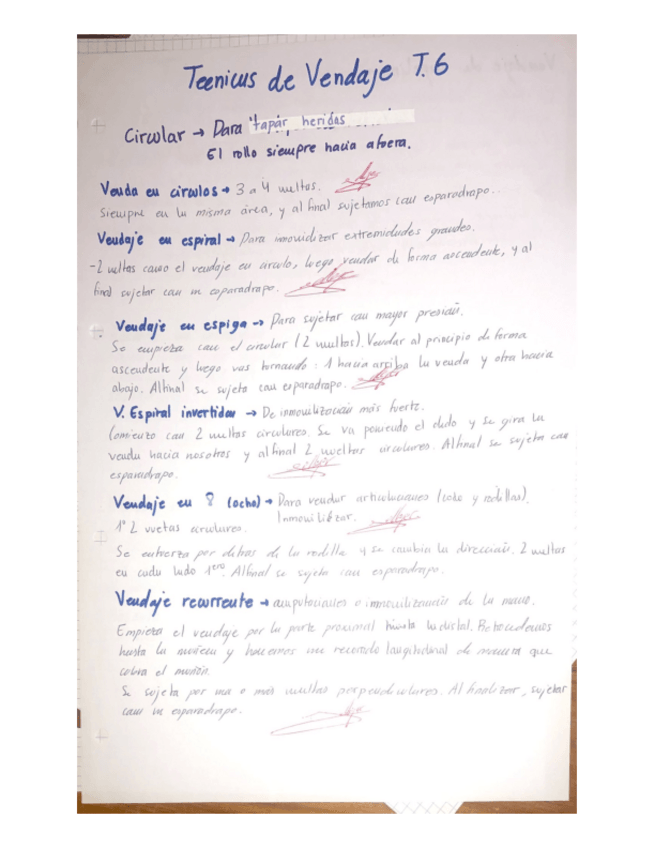 Tecnicas de Vendaje T.6
Circular → Para tapar heridas
El rollo siempre hacia afuera.
Venda en circulos → 3 a 4 vueltas.
Siempre en la misma área, y al final sujetamos con esparadrapo..
Vendaje en espiral → Para inmovilizar extremidades grandes.
-2 vueltas como el vendaje en circulo, luego vendar de forma ascendente, y al
final sujetar con un esparadrapo.
Vendaje en espiga → Para sujetar con mayor presión.
Se empieza con el circular (2 vueltas). Vendar al principio de forma
ascendente y luego vas tornando: 1 hacia arriba la venda y otra hacia
abajo. Al final se sujeta con esparadrapo.
V. Espiral invertida → De inmovilización más fuerte.
Comienzo con 2 vueltas circulares. Se va poniendo el dedo y se gira la
venda hacia nosotros y al final 2 vueltas circulares. Al final se sujeta con
esparadrapo.
Vendaje en 8 (ocho) → Para vendar articulaciones (codo y rodillas).
Inmovilizar.
1º 2 vuetas circulares.
Se entuerza por detras de la rodilla y se cambia la dirección. 2 vueltas
en cada lado 1ero. Al final se sujeta con esparadrapo.
Vendaje recurrente → amputaciones o inmovilización de la mano.
Empieza el vendaje por la parte proximal hasta la distal. Retrocedemos
hasta la muñeca y hacemos un recorrido longitudinal de manera que
cubra el muñón.
Se sujeta por una o más vueltas perpendiculares. Al finalizar, sujetar
con un esparadrapo.